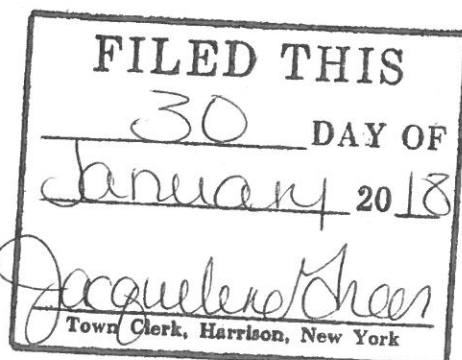 FILED THIS
30 DAY OF
January 20 18
Jacqueline Greer
Town Clerk, Harrison, New York